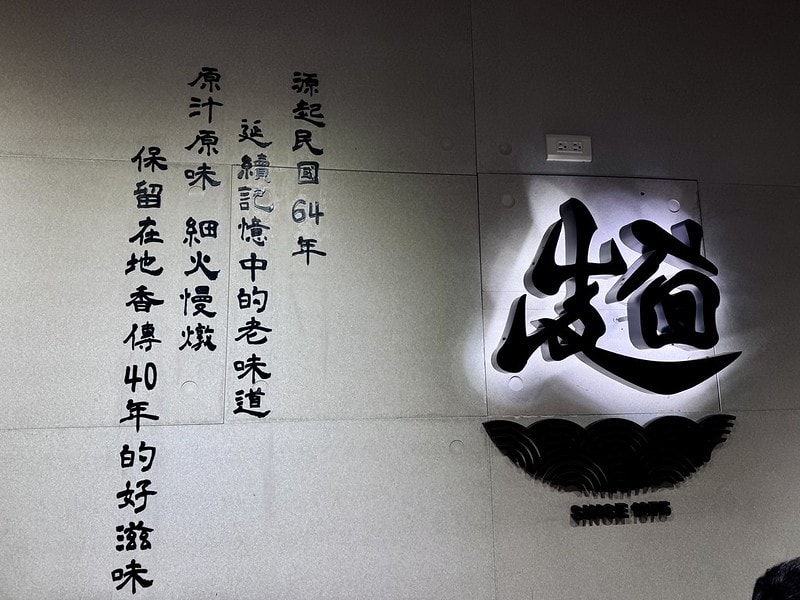 源起民國64年
延續記憶中的老味道
原汁原味 細火慢燉
保留在地香傳40年的好滋味
SINCE 1975